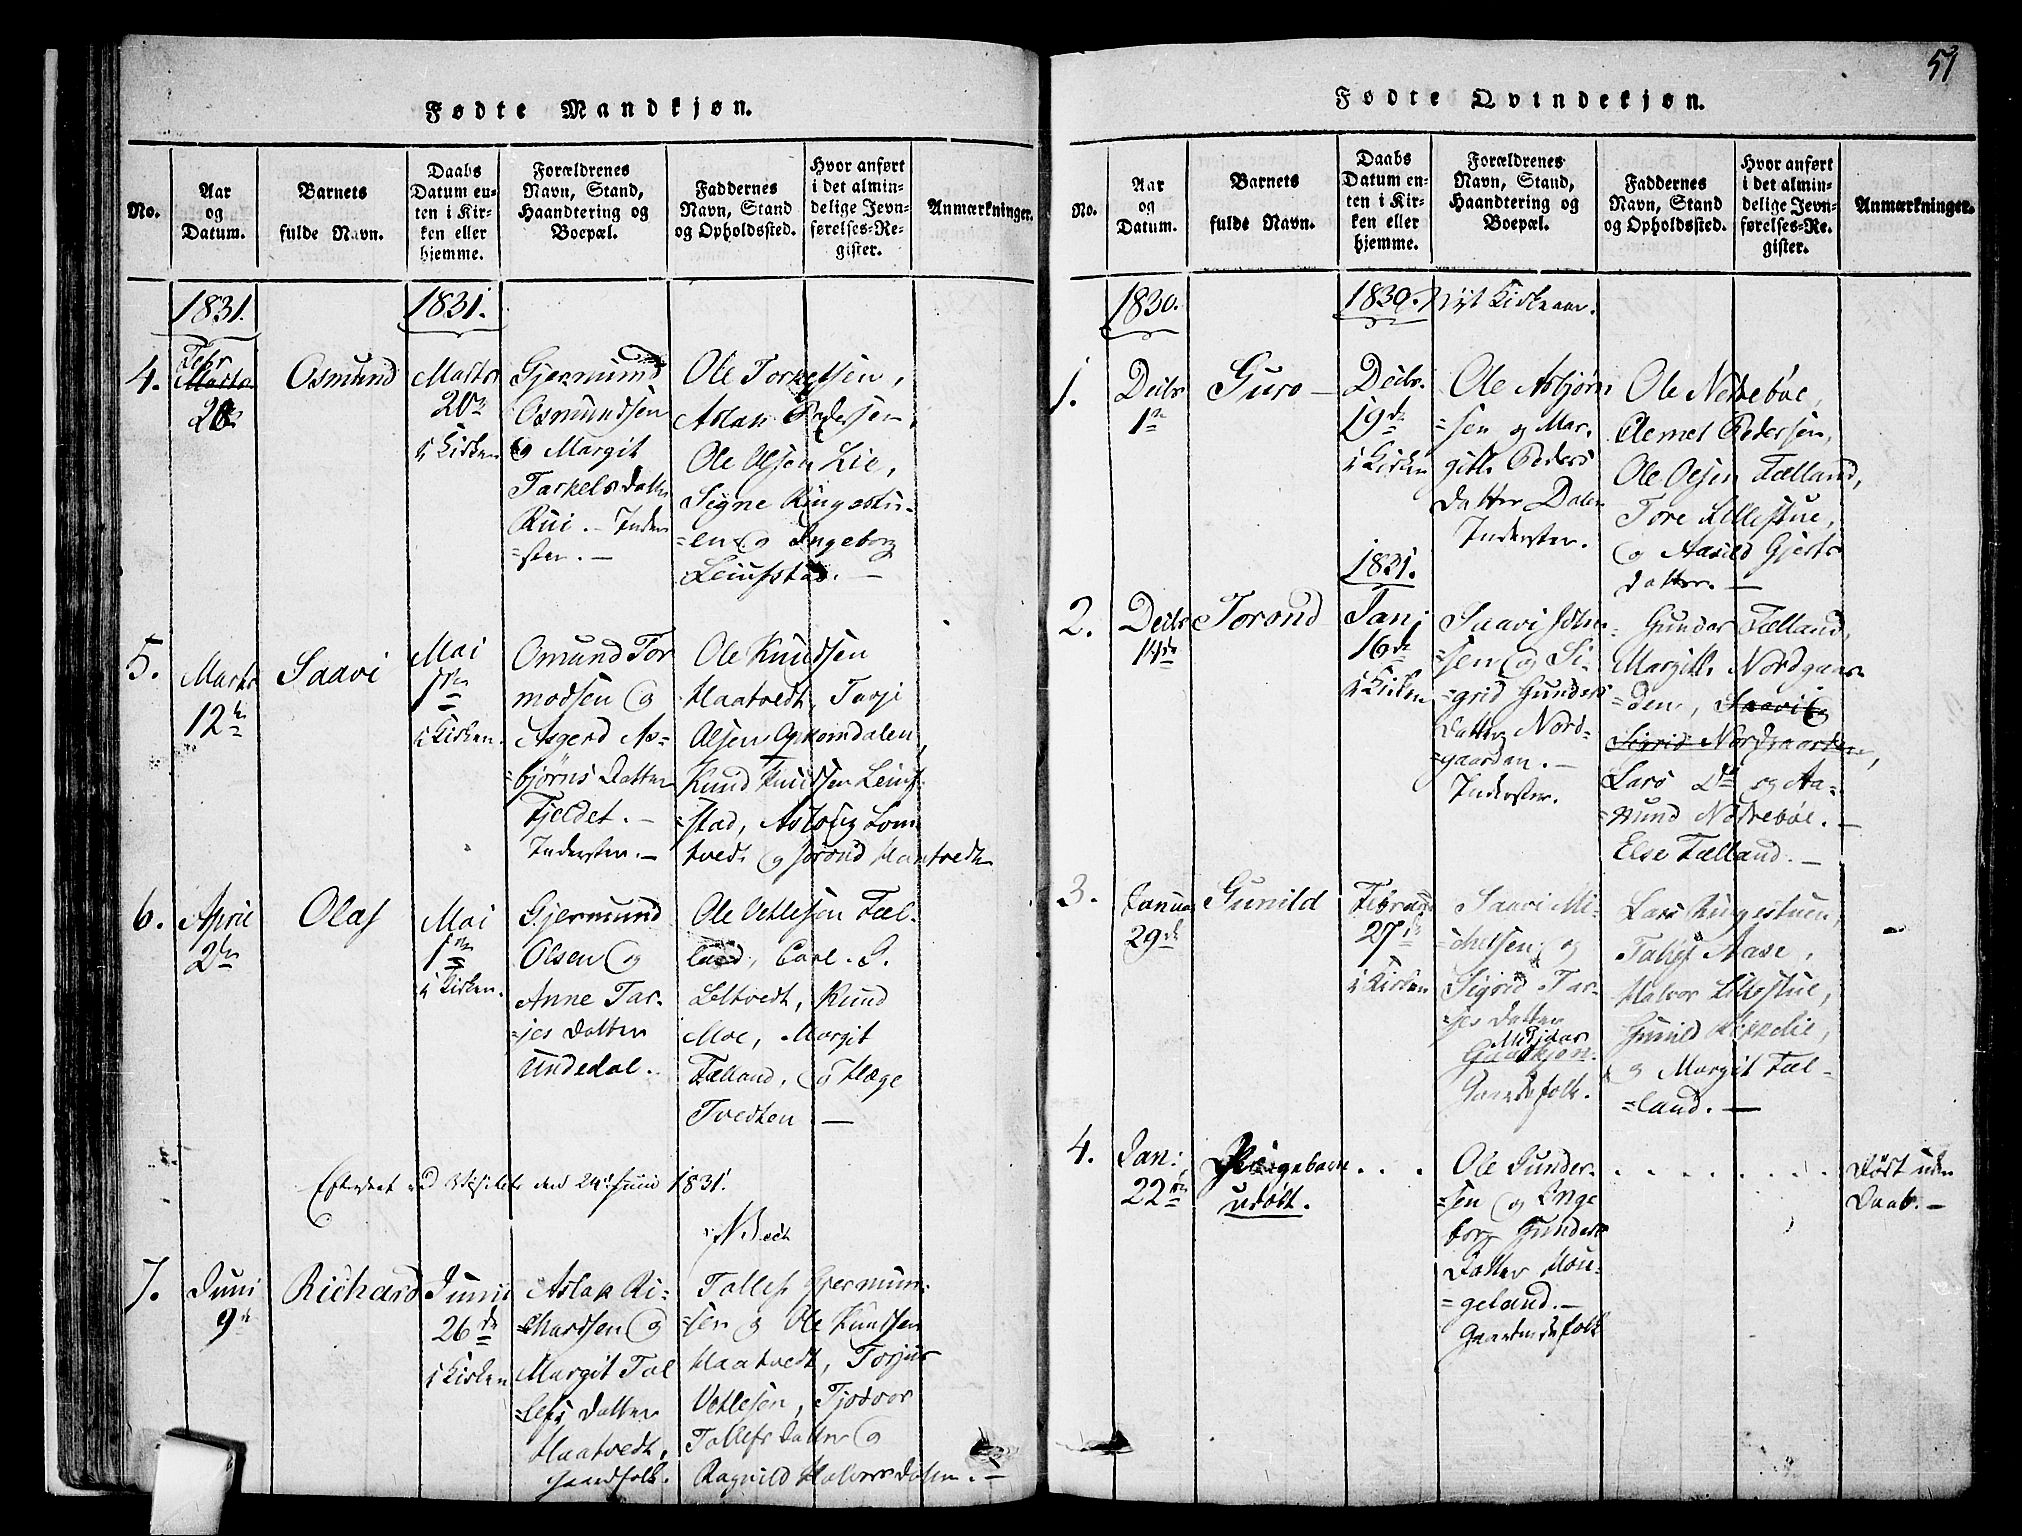 Fødte Mandkjøn.
No.
Aar
og
Datum.
Barnets
fulde Navn.
Daabs
Datum en-
ten i Kir-
ken eller
hjemme.
Forældrenes
Navn, Stand,
Haandtering og
Boepæl.
Faddernes
Navn, Stand
og Opholdssted.
Hvor anført
i det almin-
delige Jevn-
førelses-Re-
gister.
Anmærkninger.
1831.
1831.
4.
Febr
Marts
Osmund
Marts
20de
i Kirken
Gjermund
Osmundsen
og Margit
Tarkelsdatter
Rui. - Inder
=ster. -
Ole Torkelsen,
Aslak Pedersen,
Ole Olsen Lie,
Signe Ringestu-
=en og Ingeborg
Leiufstad. -
5.
Marts
12te
Saavi
Mai
1ste
i Kirken.
Omund Tor
modsen og
Asgerd As-
=bjørns Datter
Fjeldet. -
Inderster. -
Ole Knudsen
Haatvedt, Tarje
Olsen Opkomdalen,
Knud Knudsen Leiuf-
=stad, Asloug Lom
tvedt og Jorond Haatvedt
6.
April
2den
Olaf
Mai
1ste
i Kirken.
Gjermund
Olsen og
Anne Tar-
=jes Datter
Undedal. -
Ole Vetlesen Fæl-
land, Carl. S.
Leltvedt, Knud
Moe, Margit
Fælland, og Hæge
Tvedten -
Efterseet ved Visitats den 24de Junii 1831.
N Bech
7.
Juni
9de
Richard
Junii
26de
i Kirken
Aslak Ri-
=chardsen og
Margit Tal
=lefs Datter
Haatvedt,
Gaardfolk.
Tallef Gjermun-
=sen og Ole Knudsen
Haatvedt, Torjus
Vetlesen, Tjodvor
Tallefs Datter og
Ragnild Halvorsdatter. -
51
Fødte Qvindekjøn.
No.
Aar
og
Datum.
Barnets
fulde Navn.
Daabs
Datum en-
ten i Kir-
ken eller
hjemme.
Forældrenes
Navn, Stand,
Haandtering og
Boepæl.
Faddernes
Navn, Stand
og Opholdssted.
Hvor anført
i det almin-
delige Jevn-
førelses-Re-
gister.
Anmærkninger.
1830.
1830.
Nyt Kirkeaar.
1.
Decbr
1ste
Guro -
Decbr.
19de
i Kirken
Ole Asbjørn
=sen og Mar-
gitte Peders
Datter Dalen
Inderster.
Ole Nedrebøe,
Clemet Pedersen,
Ole Olsen Fælland,
Tore Lillestue,
og Aasild Gjerts
datter. -
1831.
2.
Decbr
14de
Torond
Jan:
16de
i Kirken
Saavi John
=sen og Si-
=grid Gunders
Datter Nord-
=gaarden. -
Inderster.
Gunder Fælland,
Margitte Nordgaar-
=den, Saavi og
Sigrid Nordgaarden,
Lars do og Aa-
=mund Nedrebøe. -
Else Fælland. -
3.
Januar
29de
Gunild
Februar
27de
i Kirken
Saavi Mi-
=chelsen og
Sigrid Tar-
=jes Datter
Gaardfolk.
Lars Ringestuen,
Tallef Aase,
Halvor Lillestue,
Gunild
og Margit Fæl-
=land. -
4.
Jan:
22de
Pigebarn
udøbt.
. . .
Ole Gunder-
=sen og Inge
borg Gunders
Datter Hou-
=geland. -
Gaardmandsfolk
Født uden
Daab. -